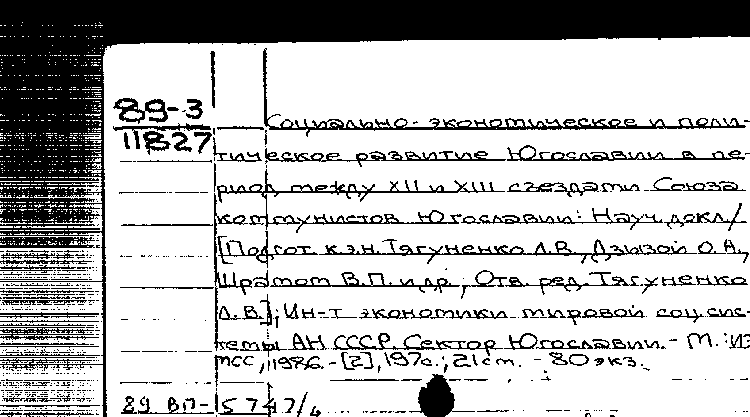 89-3
11827
Социально-экономическое и поли-
тическое развитие Югославии в пе-
риод между XII и XIII съездами Союза
коммунистов Югославии: Науч. докл/
[Подгот. к.э.н. Тягуненко Л.В., Дзизой О.А.,
Шрамом В.П. и др.; Отв. ред. Тягуненко
Л.В.]; Ин-т экономики мировой соц.сис-
темы АН СССР. Сектор Югославии. - М.: ИЭ
МСС, 1986. - [2], 197с.; 21см. - 80 экз.
89 ВП- 5747/4